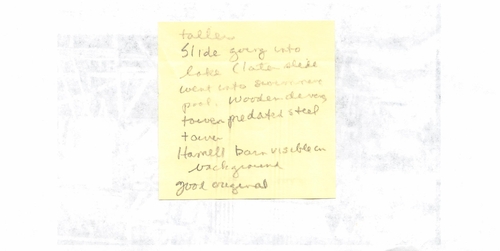 taller
Slide going into
lake (later slide
went into swimming
pool. Wooden diving
tower predated steel
tower
Hamell barn visible in
background
good original